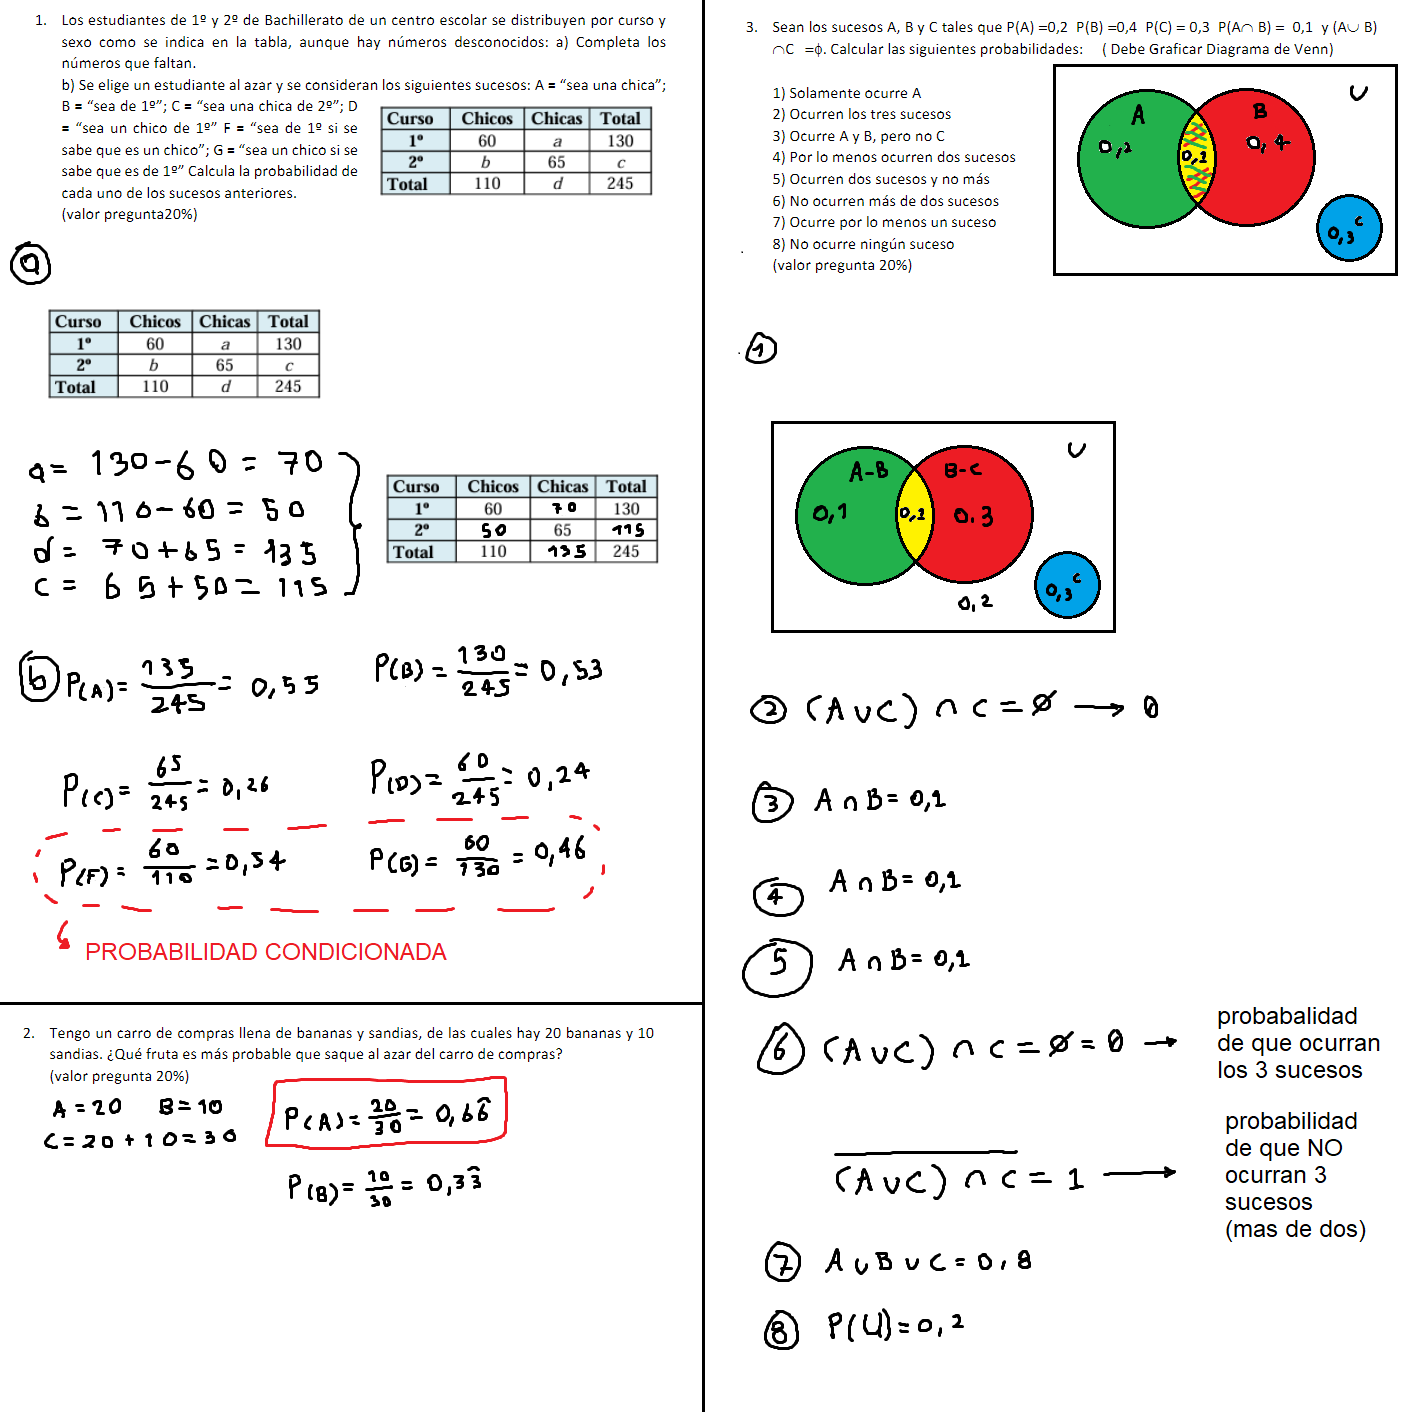 1. Los estudiantes de 1º y 2º de Bachillerato de un centro escolar se distribuyen por curso y
sexo como se indica en la tabla, aunque hay números desconocidos: a) Completa los
números que faltan.
b) Se elige un estudiante al azar y se consideran los siguientes sucesos: A = “sea una chica”;
B = “sea de 1º”; C = “sea una chica de 2º”; D
= “sea un chico de 1º” F = “sea de 1º si se
sabe que es un chico”; G = “sea un chico si se
sabe que es de 1º” Calcula la probabilidad de
cada uno de los sucesos anteriores.
(valor pregunta20%)
Curso Chicos Chicas Total
1º 60 a 130
2º b 65 c
Total 110 d 245
a
Curso Chicos Chicas Total
1º 60 a 130
2º b 65 c
Total 110 d 245
a = 130-60 = 70
b = 110-60 = 50
d = 70+65 = 135
c = 65+50 = 115
Curso Chicos Chicas Total
1º 60 70 130
2º 50 65 115
Total 110 135 245
b P(A) = 135/245 = 0,55
P(B) = 130/245 = 0,53
P(C) = 65/245 = 0,26
P(D) = 60/245 = 0,24
P(F) = 60/110 = 0,54
P(G) = 60/130 = 0,46
PROBABILIDAD CONDICIONADA
2. Tengo un carro de compras llena de bananas y sandias, de las cuales hay 20 bananas y 10
sandias. ¿Qué fruta es más probable que saque al azar del carro de compras?
(valor pregunta 20%)
A = 20 B = 10
C = 20 + 10 = 30
P(A) = 20/30 = 0,66
P(B) = 10/30 = 0,33
3. Sean los sucesos A, B y C tales que P(A) =0,2 P(B) =0,4 P(C) = 0,3 P(A∩ B) = 0,1 y (A∪ B)
∩C =ϕ. Calcular las siguientes probabilidades: ( Debe Graficar Diagrama de Venn)
1) Solamente ocurre A
2) Ocurren los tres sucesos
3) Ocurre A y B, pero no C
4) Por lo menos ocurren dos sucesos
5) Ocurren dos sucesos y no más
6) No ocurren más de dos sucesos
7) Ocurre por lo menos un suceso
8) No ocurre ningún suceso
(valor pregunta 20%)
U
A
B
0,2
0,1
0,4
C
0,3
1
U
A-B
B-C
0,1
0,1
0.3
C
0,3
0,2
2 (A∪C) ∩ C = ∅ → 0
3 A ∩ B = 0,1
4 A ∩ B = 0,1
5 A ∩ B = 0,1
6 (A∪C) ∩ C = ∅ = 0 →
probabalidad
de que ocurran
los 3 sucesos
(A∪C) ∩ C = 1 →
probabilidad
de que NO
ocurran 3
sucesos
(mas de dos)
7 A ∪ B ∪ C = 0,8
8 P(U) = 0,2